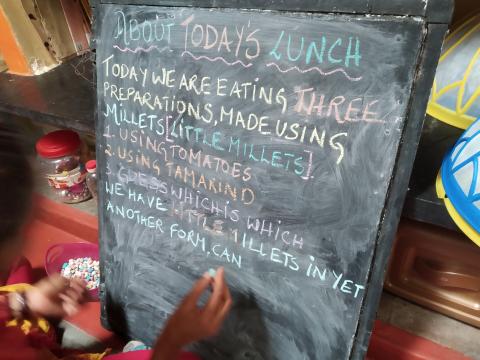 ABOUT TODAY'S LUNCH
TODAY WE ARE EATING THREE
PREPARATIONS, MADE USING
MILLETS [LITTLE MILLETS].
1. USING TOMATOES
2. USING TAMARIND
3. GUESS WHICH IS WHICH
WE HAVE LITTLE MILLETS IN YET
ANOTHER FORM, CAN